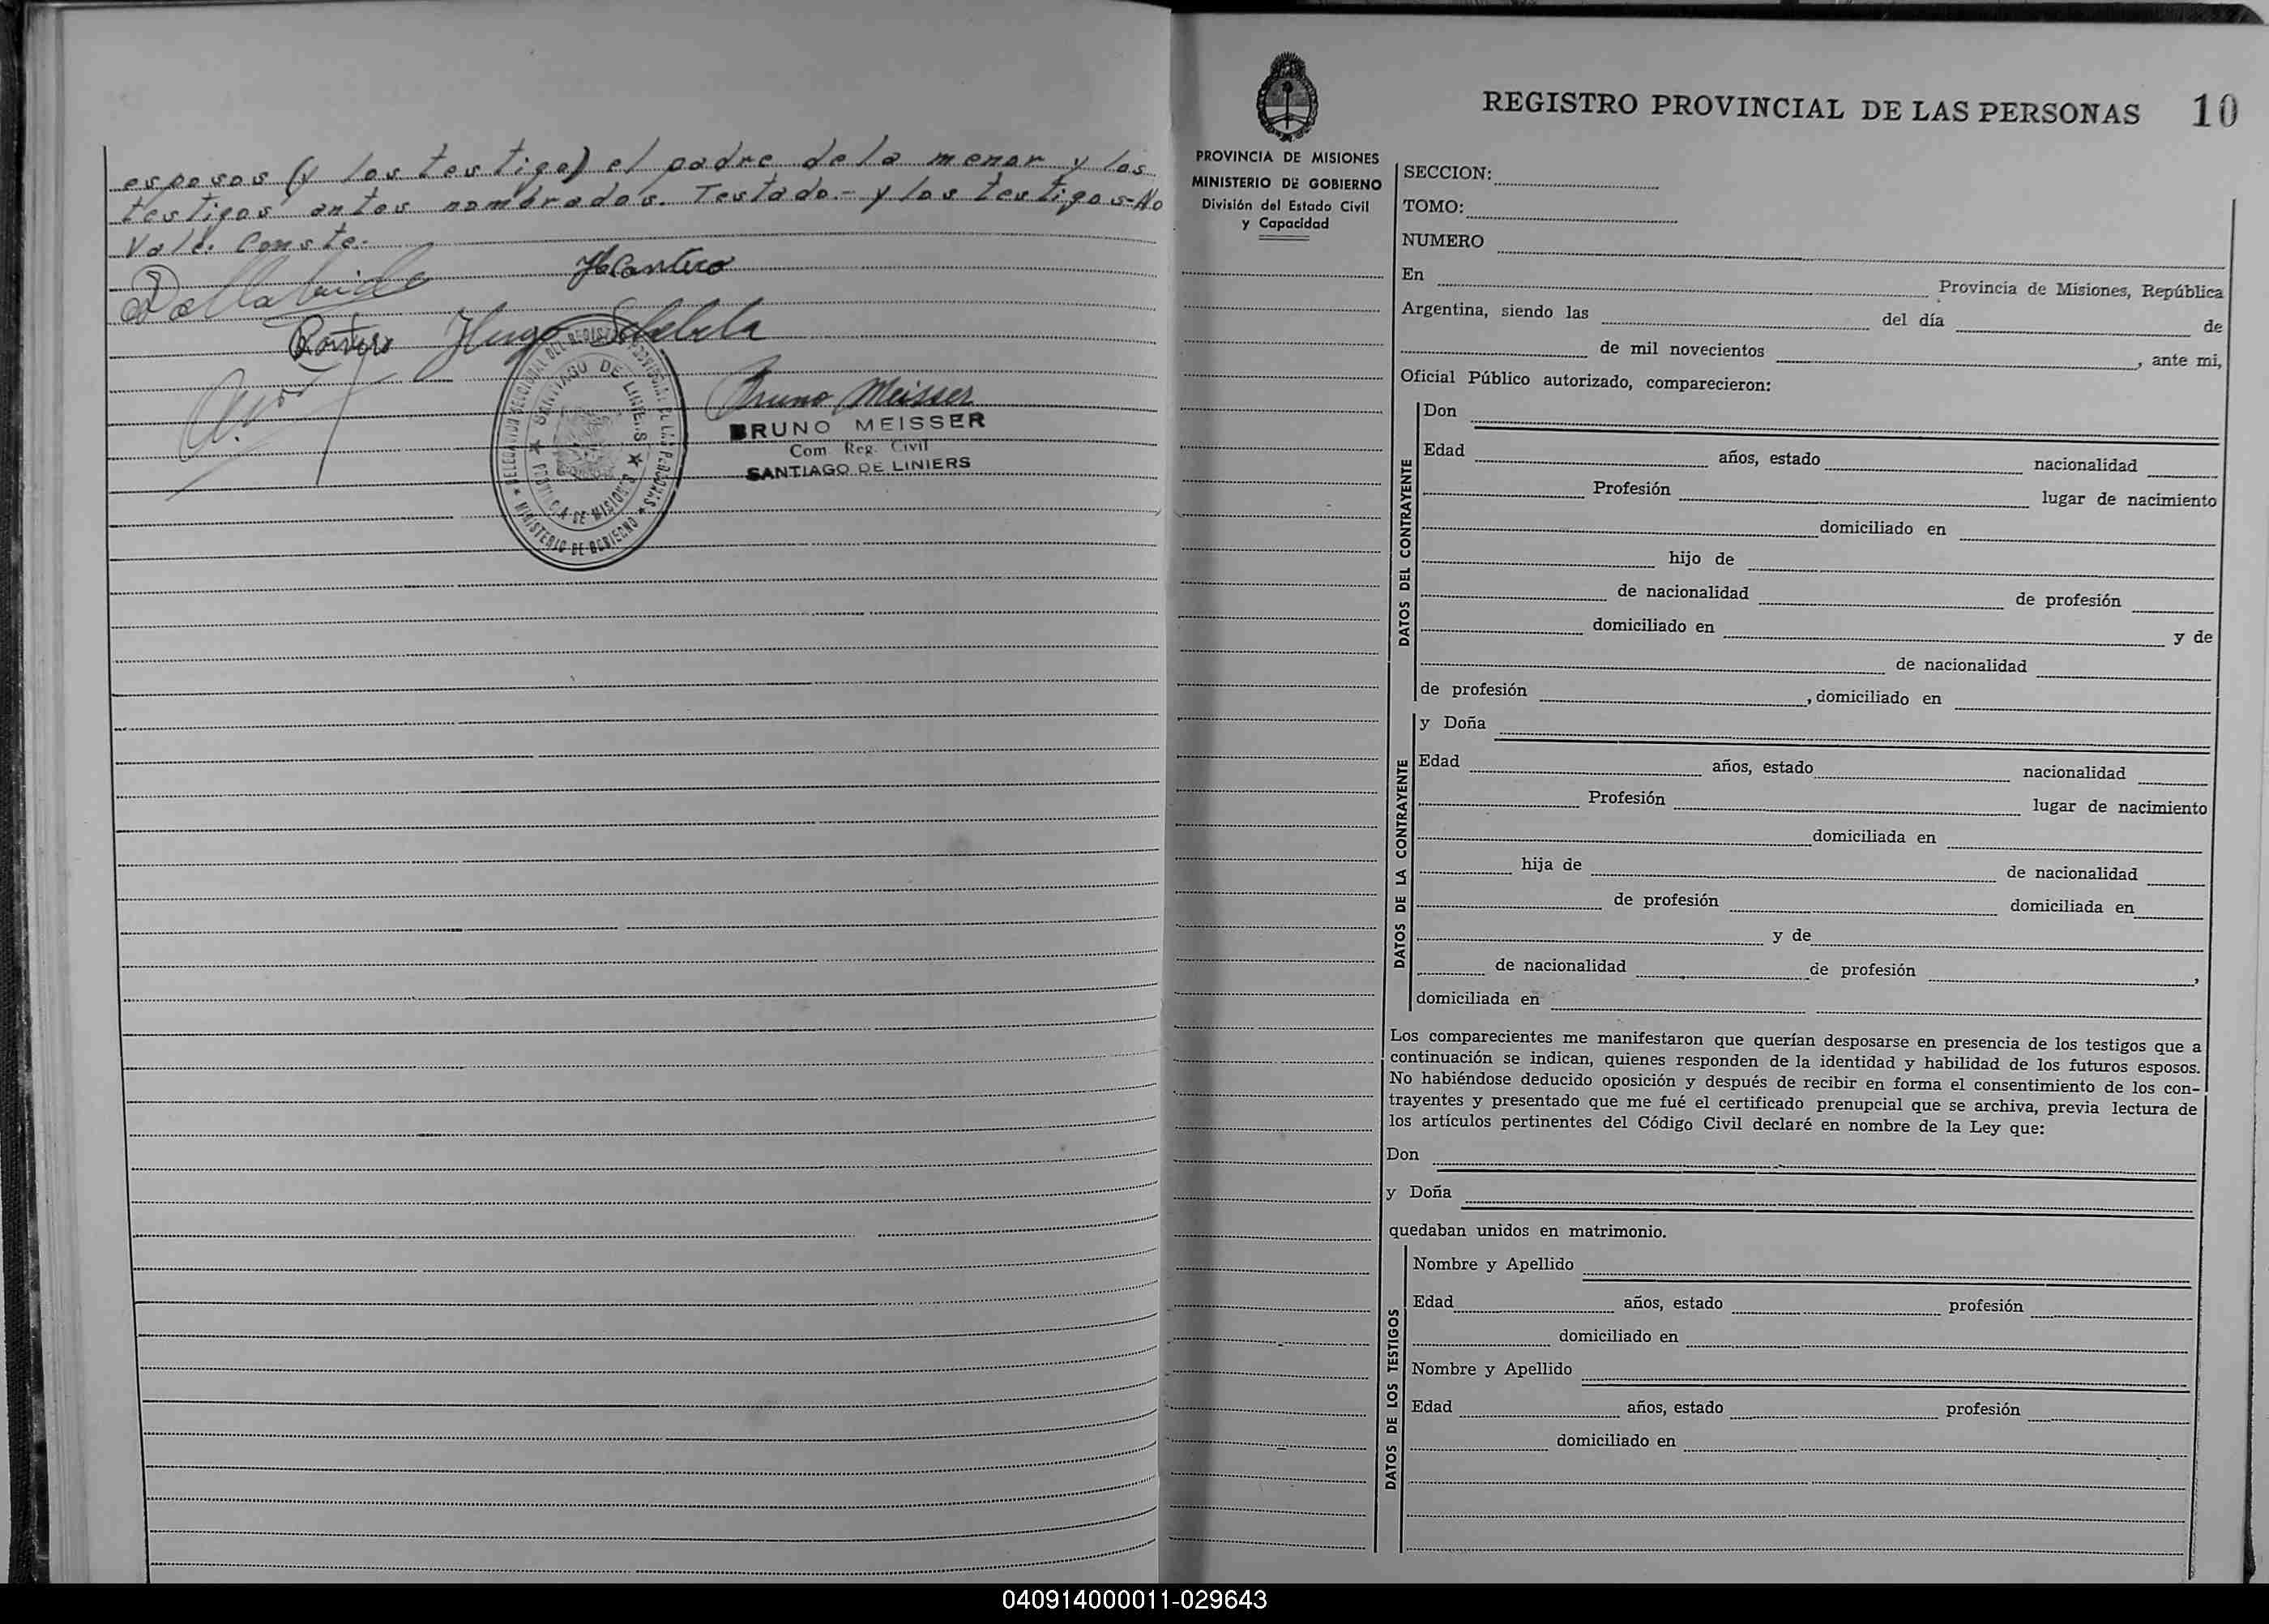 esposos (y los testigo) el padre de la menor y los
testigos antes nombrados. Testado.- y los testigos-No
Vale. Conste.
Hugo
Bruno Meisser
BRUNO MEISSER
Com. Reg. Civil
SANTIAGO DE LINIERS
DELEGACION SECCIONAL DEL REGISTRO PROVINCIAL DE LAS PERSONAS
★ MINISTERIO DE GOBIERNO ★
★ SANTIAGO DE LINIERS ★
PROVINCIA DE MISIONES
REGISTRO PROVINCIAL DE LAS PERSONAS 10
PROVINCIA DE MISIONES
MINISTERIO DE GOBIERNO
División del Estado Civil
y Capacidad
SECCION:
TOMO:
NUMERO
En Provincia de Misiones, República
Argentina, siendo las del día de
de mil novecientos , ante mi,
Oficial Público autorizado, comparecieron:
DATOS DEL CONTRAYENTE
Don
Edad años, estado nacionalidad
Profesión lugar de nacimiento
domiciliado en
hijo de
de nacionalidad de profesión
domiciliado en y de
de nacionalidad
de profesión , domiciliado en
DATOS DE LA CONTRAYENTE
y Doña
Edad años, estado nacionalidad
Profesión lugar de nacimiento
domiciliada en
hija de de nacionalidad
de profesión domiciliada en
y de
de nacionalidad de profesión ,
domiciliada en
Los comparecientes me manifestaron que querían desposarse en presencia de los testigos que a
continuación se indican, quienes responden de la identidad y habilidad de los futuros esposos.
No habiéndose deducido oposición y después de recibir en forma el consentimiento de los con-
trayentes y presentado que me fué el certificado prenupcial que se archiva, previa lectura de
los artículos pertinentes del Código Civil declaré en nombre de la Ley que:
Don
y Doña
quedaban unidos en matrimonio.
DATOS DE LOS TESTIGOS
Nombre y Apellido
Edad años, estado profesión
domiciliado en
Nombre y Apellido
Edad años, estado profesión
domiciliado en
040914000011-029643